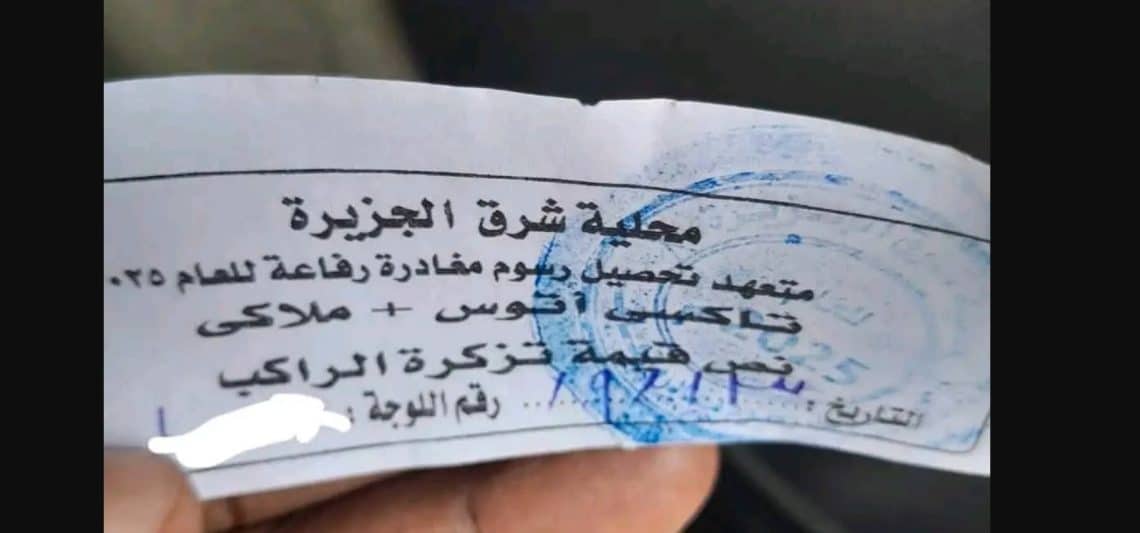 محلية شرق الجزيرة
متعهد تحصيل رسوم مغادرة رفاعة للعام ٢٠٢٥
تاكسى أتوس + ملاكى
نص قيمة تزكرة الراكب
التاريخ : رقم اللوحة :
2025